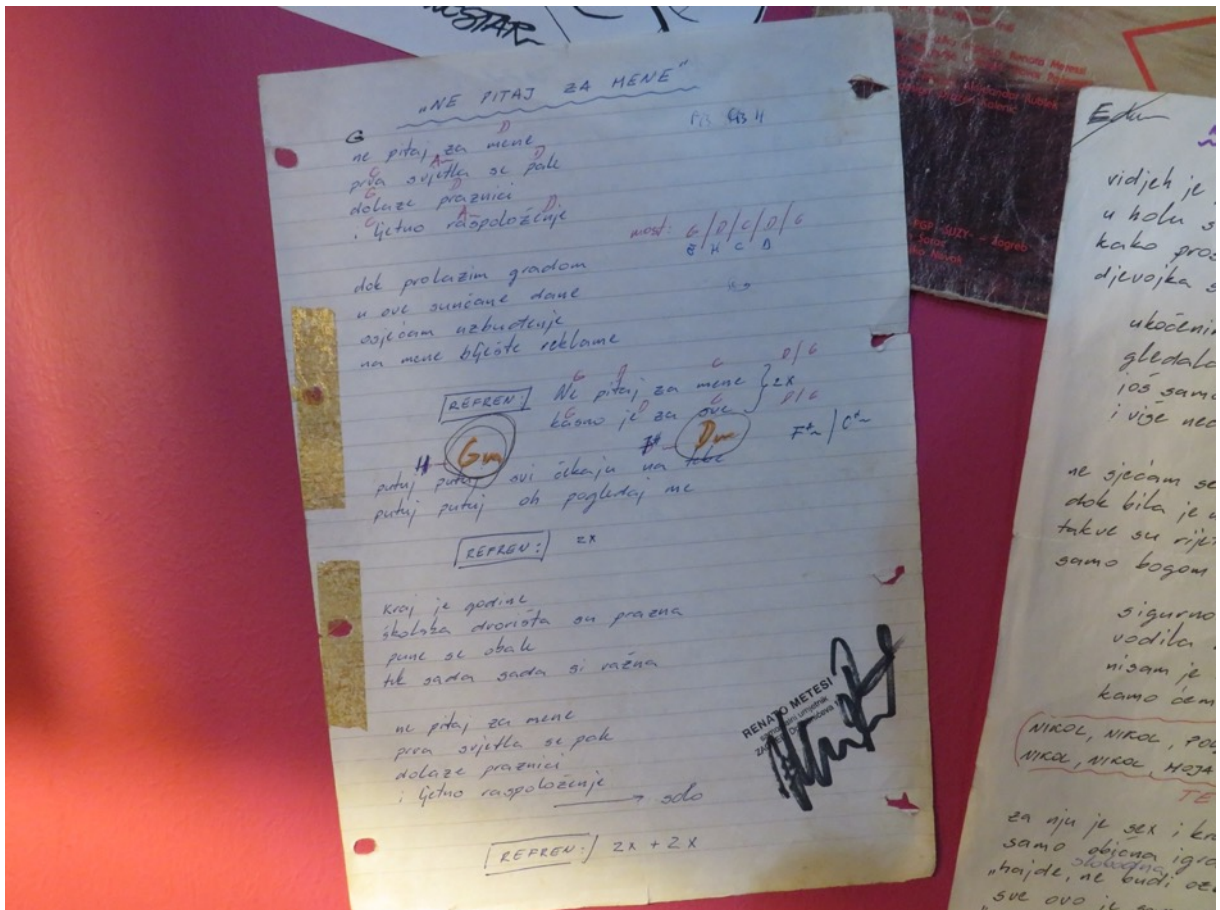 MOSTAR
„NE PITAJ ZA MENE"
G D
ne pitaj za mene
C A~ D
prva svjetla se pale
G D
dolaze praznici
C A~ D
i ljetno raspoloženje
most: G/D/C/D/G
E H C D
dok prolazim gradom
u ove sunčane dane
osjećam uzbuđenje
na mene blješte reklame
G C D/G
REFREN: Ne pitaj za mene } 2X
G D C D/G
kasno je za sve
H Gm Dm F#~ / C#~
putuj putuj svi čekaju na tebe
putuj putuj oh pogledaj me
REFREN: 2X
kraj je godine
školska dvorišta su prazna
pune se obale
tek sada sada si važna
ne pitaj za mene
prva svjetla se pale
dolaze praznici
i ljetno raspoloženje
→ solo
REFREN: 2X + 2X
RENATO METESI
samostalni umjetnik
Renata Metessi
Aleksandar Kubiek
PGP SUZY - Zagreb
Novak
Edu
vidjeh je
u holu s
kako pros
djevojka s
ukočenim
gledala
još samo
i više ne
ne sjećam se
dok bila je u
takve su rijet
samo bogom
sigurno
vodila
nisam je
kamo ćem
NIKOL, NIKOL, POL
NIKOL, NIKOL, MOJA
TE
za nju je sex i kra
samo obična igra
slobodna
„hajde, ne budi oz
„sve ovo je sam